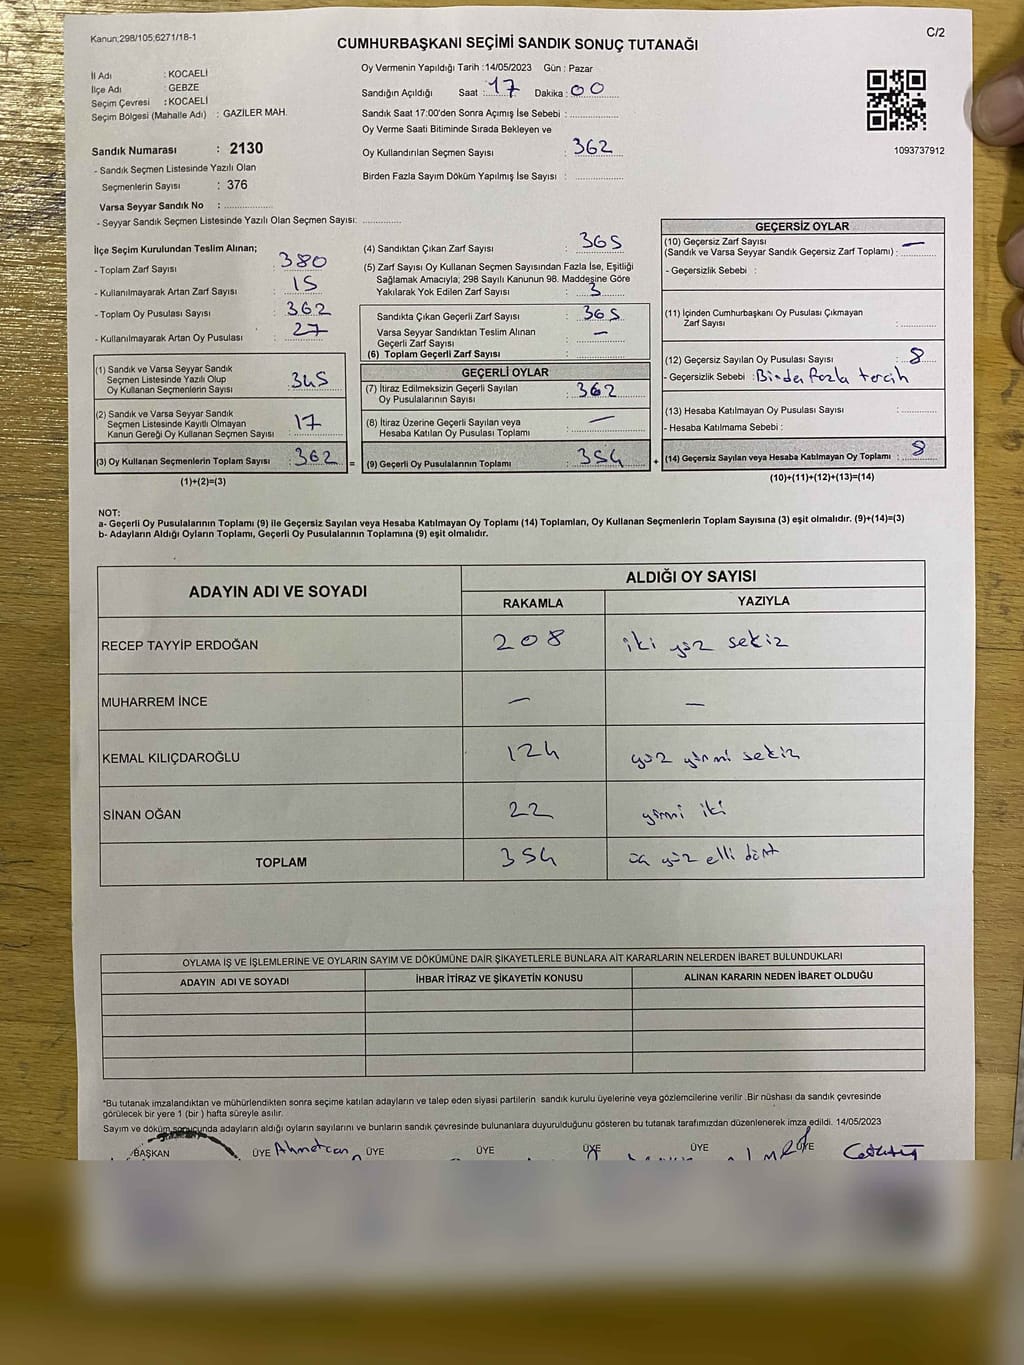 Kanun;298/105;6271/18-1
C/2
CUMHURBAŞKANI SEÇİMİ SANDIK SONUÇ TUTANAĞI
İl Adı : KOCAELİ
İlçe Adı : GEBZE
Seçim Çevresi : KOCAELİ
Seçim Bölgesi (Mahalle Adı) : GAZİLER MAH.
Sandık Numarası : 2130
- Sandık Seçmen Listesinde Yazılı Olan
Seçmenlerin Sayısı : 376
Varsa Seyyar Sandık No :
- Seyyar Sandık Seçmen Listesinde Yazılı Olan Seçmen Sayısı:
Oy Vermenin Yapıldığı Tarih :14/05/2023 Gün : Pazar
Sandığın Açıldığı Saat : 17 Dakika : 00
Sandık Saat 17:00'den Sonra Açımış İse Sebebi :
Oy Verme Saati Bitiminde Sırada Bekleyen ve
Oy Kullandırılan Seçmen Sayısı : 362
Birden Fazla Sayım Döküm Yapılmış İse Sayısı :
1093737912
İlçe Seçim Kurulundan Teslim Alınan;
- Toplam Zarf Sayısı : 380
- Kullanılmayarak Artan Zarf Sayısı : 15
- Toplam Oy Pusulası Sayısı : 362
- Kullanılmayarak Artan Oy Pusulası : 27
(1) Sandık ve Varsa Seyyar Sandık
Seçmen Listesinde Yazılı Olup
Oy Kullanan Seçmenlerin Sayısı : 345
(2) Sandık ve Varsa Seyyar Sandık
Seçmen Listesinde Kayıtlı Olmayan
Kanun Gereği Oy Kullanan Seçmen Sayısı : 17
(3) Oy Kullanan Seçmenlerin Toplam Sayısı : 362 =
(1)+(2)=(3)
(4) Sandıktan Çıkan Zarf Sayısı : 365
(5) Zarf Sayısı Oy Kullanan Seçmen Sayısından Fazla İse, Eşitliği
Sağlamak Amacıyla; 298 Sayılı Kanunun 98. Maddesine Göre
Yakılarak Yok Edilen Zarf Sayısı : 3
Sandıkta Çıkan Geçerli Zarf Sayısı : 365
Varsa Seyyar Sandıktan Teslim Alınan
Geçerli Zarf Sayısı : —
(6) Toplam Geçerli Zarf Sayısı :
GEÇERLİ OYLAR
(7) İtiraz Edilmeksizin Geçerli Sayılan
Oy Pusulalarının Sayısı : 362
(8) İtiraz Üzerine Geçerli Sayılan veya
Hesaba Katılan Oy Pusulası Toplamı : —
(9) Geçerli Oy Pusulalarının Toplamı : 354 +
GEÇERSİZ OYLAR
(10) Geçersiz Zarf Sayısı —
(Sandık ve Varsa Seyyar Sandık Geçersiz Zarf Toplamı) :
- Geçersizlik Sebebi :
(11) İçinden Cumhurbaşkanı Oy Pusulası Çıkmayan
Zarf Sayısı :
(12) Geçersiz Sayılan Oy Pusulası Sayısı : 8
- Geçersizlik Sebebi : Birden fazla tercih
(13) Hesaba Katılmayan Oy Pusulası Sayısı :
- Hesaba Katılmama Sebebi :
(14) Geçersiz Sayılan veya Hesaba Katılmayan Oy Toplamı : 8
(10)+(11)+(12)+(13)=(14)
NOT:
a- Geçerli Oy Pusulalarının Toplamı (9) ile Geçersiz Sayılan veya Hesaba Katılmayan Oy Toplamı (14) Toplamları, Oy Kullanan Seçmenlerin Toplam Sayısına (3) eşit olmalıdır. (9)+(14)=(3)
b- Adayların Aldığı Oyların Toplamı, Geçerli Oy Pusulalarının Toplamına (9) eşit olmalıdır.
ADAYIN ADI VE SOYADI ALDIĞI OY SAYISI
RAKAMLA YAZIYLA
RECEP TAYYİP ERDOĞAN 208 iki yüz sekiz
MUHARREM İNCE — —
KEMAL KILIÇDAROĞLU 124 yüz yirmi sekiz
SİNAN OĞAN 22 yirmi iki
TOPLAM 354 üç yüz elli dört
OYLAMA İŞ VE İŞLEMLERİNE VE OYLARIN SAYIM VE DÖKÜMÜNE DAİR ŞİKAYETLERLE BUNLARA AİT KARARLARIN NELERDEN İBARET BULUNDUKLARI
ADAYIN ADI VE SOYADI İHBAR İTİRAZ VE ŞİKAYETİN KONUSU ALINAN KARARIN NEDEN İBARET OLDUĞU
*Bu tutanak imzalandıktan ve mühürlendikten sonra seçime katılan adayların ve talep eden siyasi partilerin sandık kurulu üyelerine veya gözlemcilerine verilir .Bir nüshası da sandık çevresinde
görülecek bir yere 1 (bir ) hafta süreyle asılır.
Sayım ve döküm sonucunda adayların aldığı oyların sayılarını ve bunların sandık çevresinde bulunanlara duyurulduğunu gösteren bu tutanak tarafımızdan düzenlenerek imza edildi. 14/05/2023
BAŞKAN ÜYE Ahmetcan ÜYE ÜYE ÜYE ÜYE ÜYE